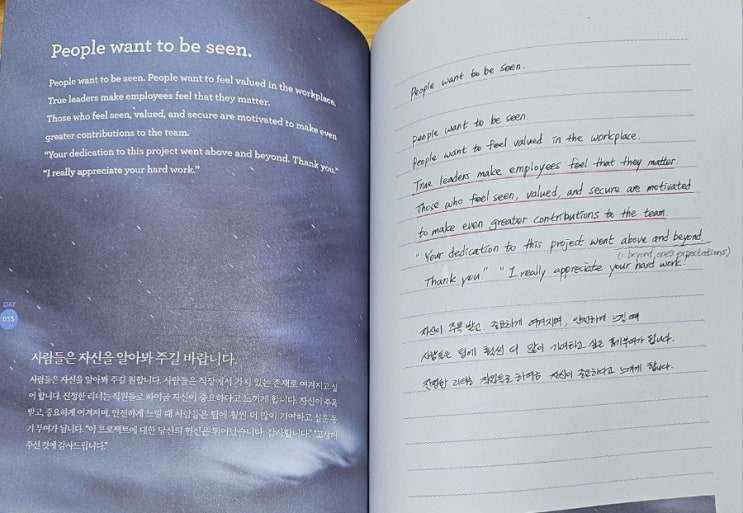 People want to be seen.
People want to be seen. People want to feel valued in the workplace.
True leaders make employees feel that they matter.
Those who feel seen, valued, and secure are motivated to make even
greater contributions to the team.
“Your dedication to this project went above and beyond. Thank you.”
“I really appreciate your hard work.”
DAY
055
사람들은 자신을 알아봐 주길 바랍니다.
사람들은 자신을 알아봐 주길 원합니다. 사람들은 직장에서 가치 있는 존재로 여겨지고 싶
어 합니다. 진정한 리더는 직원들로 하여금 자신이 중요하다고 느끼게 합니다. 자신이 주목
받고, 중요하게 여겨지며, 안전하게 느낄 때 사람들은 팀에 훨씬 더 많이 기여하고 싶은 동
기 부여가 됩니다. “이 프로젝트에 대한 당신의 헌신은 뛰어났습니다. 감사합니다.” “고생해
주신 것에 감사드립니다.”
People want to be seen.
People want to be seen.
People want to feel valued in the workplace.
True leaders make employees feel that they matter.
Those who feel seen, valued, and secure are motivated
to make even greater contributions to the team.
“Your dedication to this project went above and beyond.
(= beyond one's expectations)
Thank you.” “I really appreciate your hard work.”
자신이 주목 받고 중요하게 여겨지며, 안전하게 느낄 때
사람들은 팀에 훨씬 더 많이 기여하고 싶은 동기부여가 됩니다.
진정한 리더는 직원들로 하여금 자신이 중요하다고 느끼게 합니다.